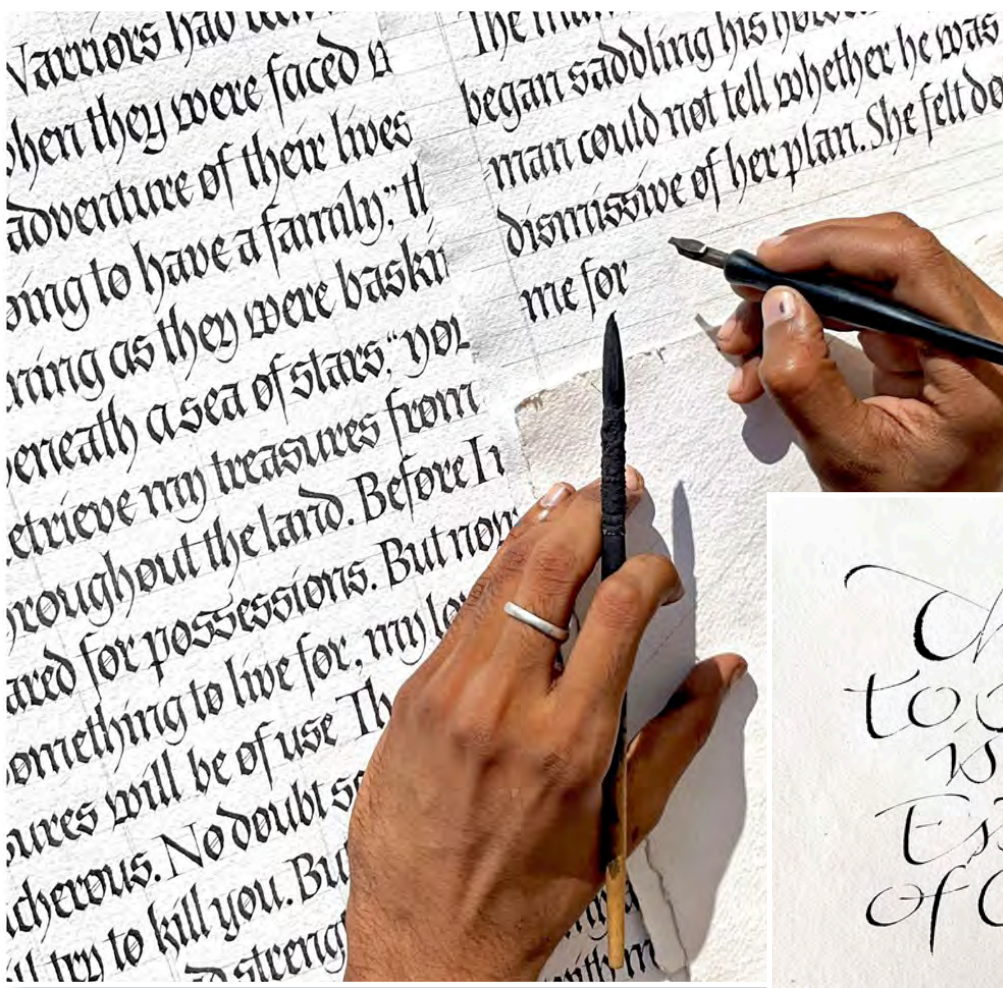 Warriors had
when they were faced
adventure of their lives
going to have a family,"
ning as they were
beneath a sea of stars. "you
retrieve my treasures from
throughout the land. Before I
cared for possessions. But now
something to live for, my
sures will be of use. Th
cherous. No doubt
ll try to kill you. But
streng
The man
began saddling his
man could not tell whether he was
dismissive of her plan. She felt
me for
with m
to
is
Es
of